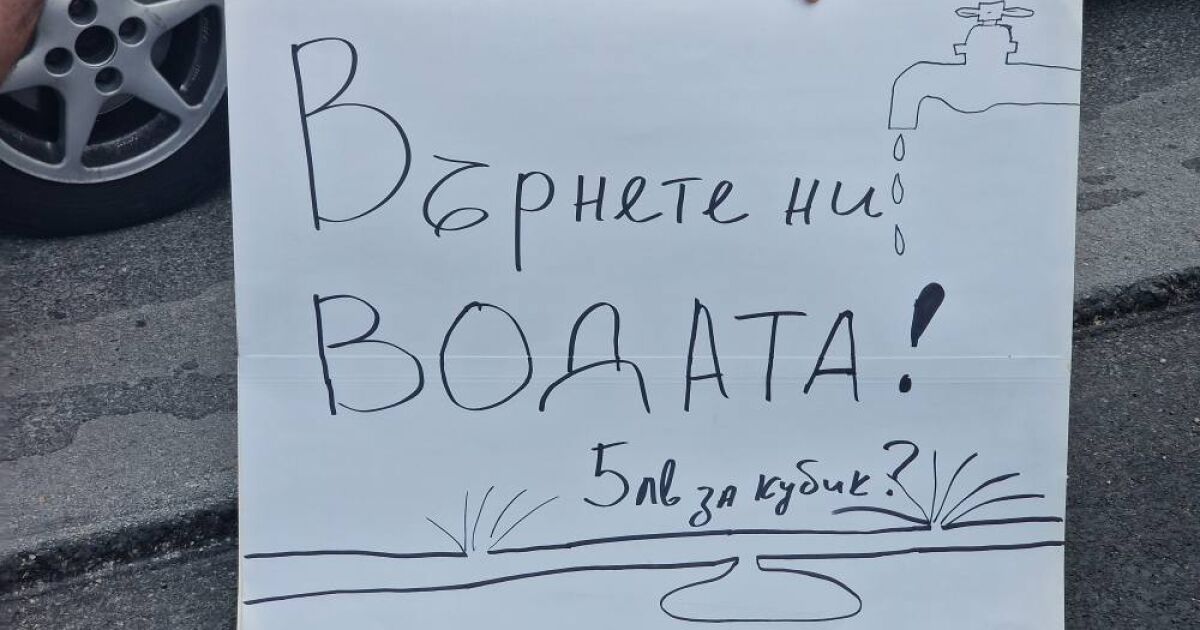 Върнете ни
ВОДАТА!
5лв за кубик?